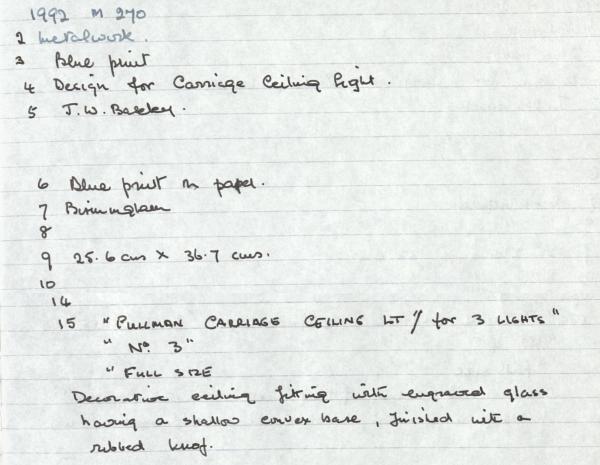 1992 M 270
2 Metalwork.
3 Blue print
4 Design for Carriage Ceiling light.
5 J.W.
6 Blue print on paper.
7 Birmingham
8
9 25.6 cms x 36.7 cms.
10
14
15 "PULLMAN CARRIAGE CEILING LT for 3 LIGHTS"
" No. 3"
" FULL SIZE
Decorative ceiling fitting with engraved glass
having a shallow convex base, finished with a
ribbed knof.